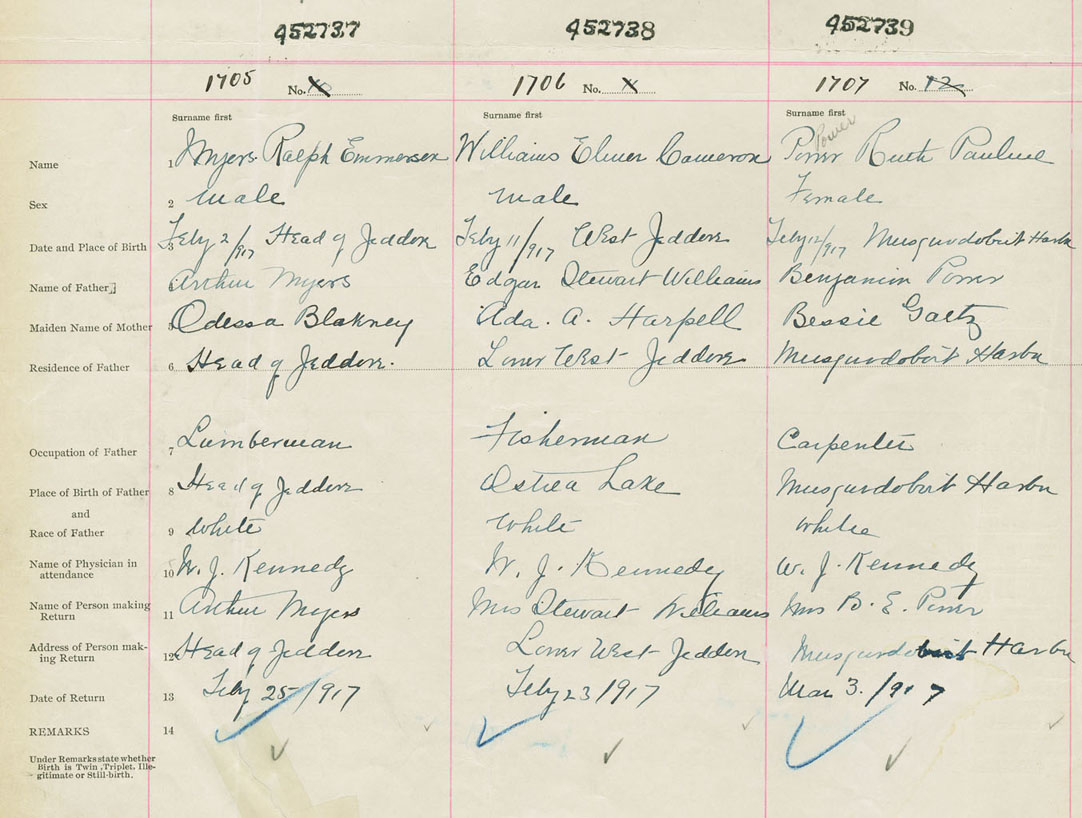 452737 452738 452739
1705 No. X 1706 No. X 1707 No. 12
Surname first Surname first Surname first
Power
Name 1 Myers Ralph Emmerson Williams Elmer Cameron Power Ruth Pauline
Sex 2 male male Female
Date and Place of Birth 3 Feby 2/917 Head of Jeddore Feby 11/917 West Jeddore Feby 12/917 Musquodoboit Harbr
Name of Father 4 Arthur Myers Edgar Stewart Williams Benjamin Power
Maiden Name of Mother 5 Odessa Blakney Ada. A. Harpell Bessie Gaetz
Residence of Father 6 Head of Jeddore. Lower West Jeddore Musquodoboit Harbr
Occupation of Father 7 Lumberman Fisherman Carpenter
Place of Birth of Father 8 Head of Jeddore Ostrea Lake Musquodoboit Harbr
and
Race of Father 9 White White White
Name of Physician in
attendance 10 W. J. Kennedy W. J. Kennedy W. J. Kennedy
Name of Person making
Return 11 Arthur Myers Mrs Stewart Williams Mrs B. E. Power
Address of Person mak-
ing Return 12 Head of Jeddore Lower West Jeddore Musquodoboit Harbr
Date of Return 13 Feby 25/1917 Feby 23/1917 Mar 3./917
REMARKS 14
Under Remarks state whether
Birth is Twin, Triplet, Ille-
gitimate or Still-birth.